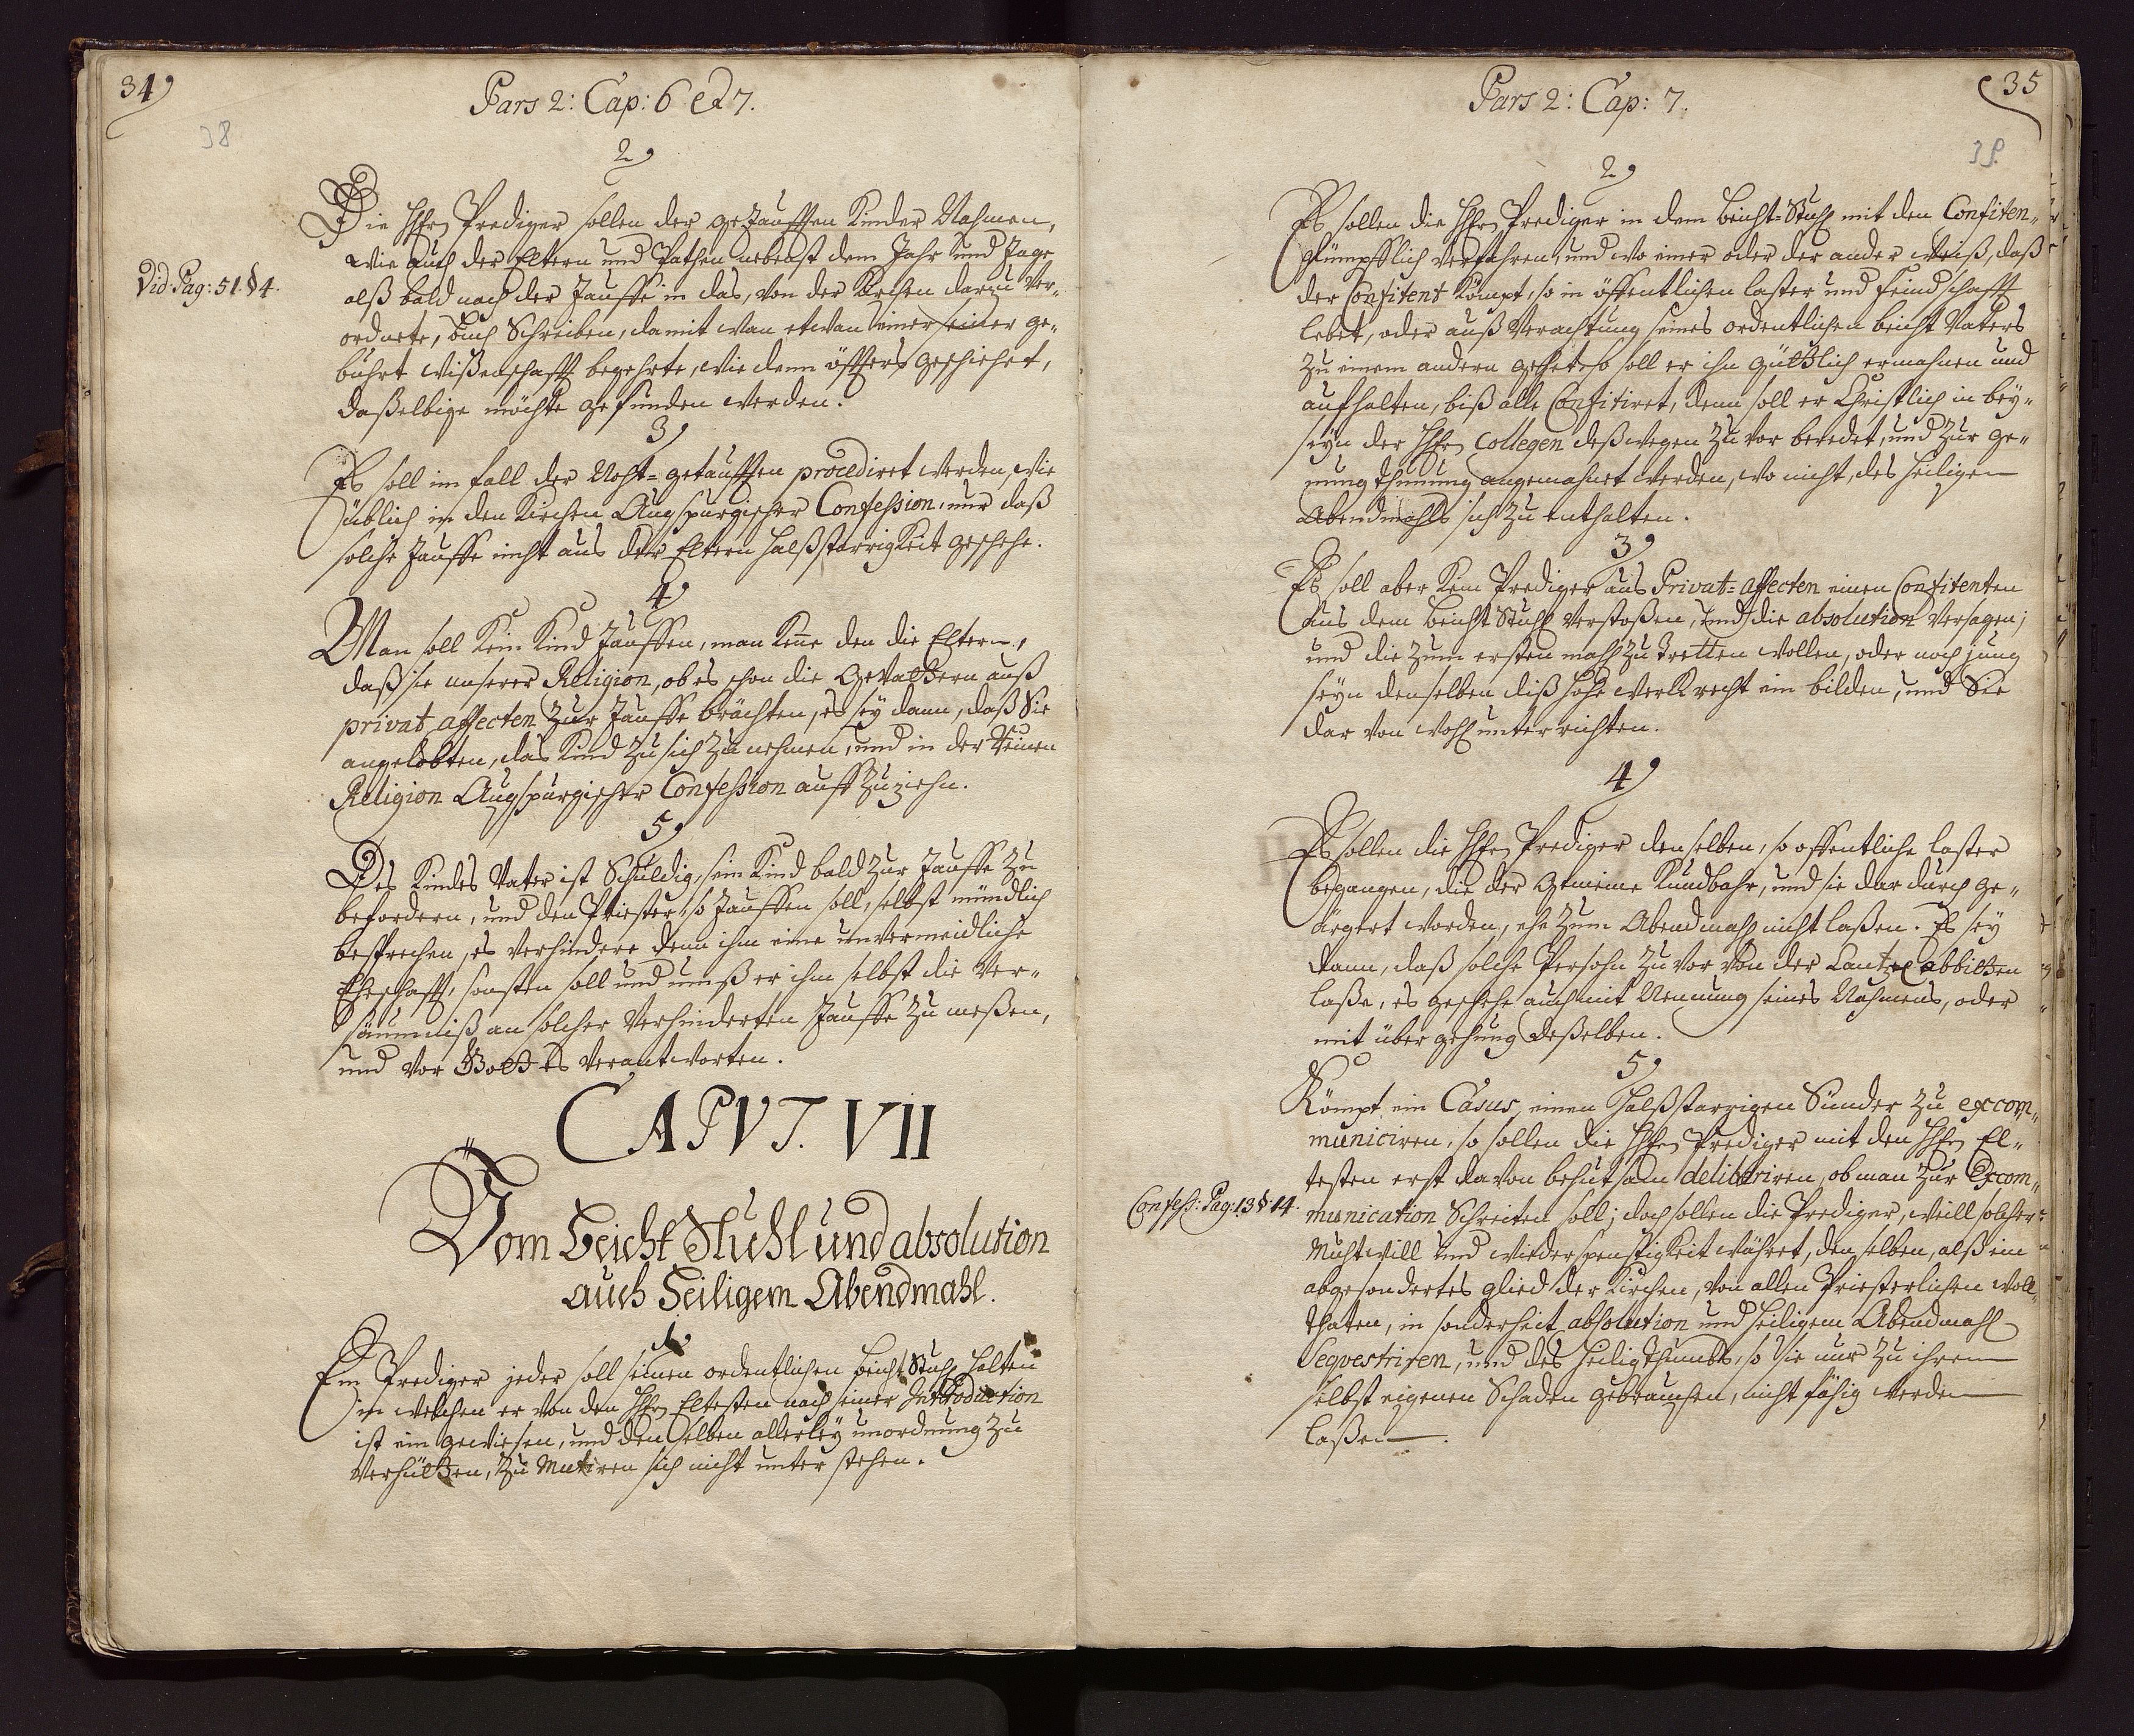 34
Pars 2: Cap: 6 et 7.
38
2
Die HhEn Prediger sollen der getaufften Kinder Nahmen,
wie auch der Eltern und Pathen nebenst dem Jahr und Tage
Vid. Pag: 51. §4.
alß bald nach der Tauffe in das, von der Kirchen darzu ver-
ordnete, buch Schreiben, damit wan etwan einer seiner ge-
buhrt wißenschafft begehrte, wie denn öffters geschiehet,
daßelbige möchte gefunden werden.
3
Es soll im fall der Noht-getaufften procediret werden, wie
üblich in den Kirchen Augspurgischer Confession, nur daß
solche Tauffe nicht aus der Eltern halßstarrigkeit geschehe.
4
Man soll kein Kind Tauffen, man kenne den die Eltern,
daß sie unserer Religion, ob es schon die Gevattern auß
privat affecten zur Tauffe brächten, es sey dann, daß Sie
angelobten, das Kind zu sich zu nehmen, und in der Reinen
Religion Augspurgischer Confession auff zuziehn.
5
Des Kindes Vater ist Schuldig, sein Kind bald zur Tauffe zu
befordern, und den Priester, so Tauffen soll, selbst mündlich
besprechen, es verhindere denn ihm eine unvermeidliche
Ehschafft, sonsten soll und muß er ihm selbst die Ver-
säumniß an solcher verhinderten Tauffe zu meßen,
und vor Gott es verantworten.
CAPVT. VII
Vom Beicht Stuhl und absolution
auch Heiligem Abendmahl.
1
Ein Prediger jeder soll seinen ordentlichen beicht Stuhl halten
in welchen er von den HhEn Eltesten nach seiner Introduction
ist ein gewiesen, und denselben allerley unordnung zu
verhütten, zu Mutiren sich nicht unter stehen.
35
Pars 2: Cap: 7.
39
2
Es sollen die HhEn Prediger in dem beicht-Stuhl mit den Confiten-
glümpfflich verfahren, und wo einer oder der ander weiß, daß
der Confitent kömpt, so in öffentlichen laster und feindschafft
lebet, oder auß verachtung seines ordentlichen beicht Vaters
zu einem andern gehet, so soll er ihn güttlich ermahnen und
aufhalten, biß alle Confitiret, denn soll er Christlich in bey-
seyn der HhEn Collegen deßwegen zu vor beredet, und zur ge-
nung thuung angemahnet werden, wo nicht, des heiligen
Abendmahls sich zu enthalten.
3
Es soll aber kein Prediger aus Privat-affecten einen Confitenten
aus dem beicht Stuhl verstoßen, und die absolution versagen;
und die zum ersten mahl zu tretten wollen, oder noch jung
seyn denselben diß hohe werk recht ein bilden, und Sie
dar von wohl unterrichten.
4
Es sollen die HhEn Prediger denselben, so offentliche laster
begangen, die der Gemeine kundbahr, und sie dar durch ge-
ärgert worden, ehe zum Abendmahl nicht laßen. Es sey
dann, daß solche Persohn zu vor von der Cantzel abbitten
laße, es geschehe auch mit Nennung seines Nahmens, oder
mit übergehung deßelben.
5
Kömpt ein Casus, einen halßstarrigen Sünder zu excom-
municiren, so sollen die HhEn Prediger mit den HhEn El-
testen erst davon behutsam deliberiren, ob man zur Excom-
Confess: Pag: 13 §: 14.
munication Schreiten soll; doch sollen die Prediger, weill solcher
Muhtwill und wiederspenstigkeit währet, denselben, alß ein
abgesondertes glied der Kirchen, von allen Priesterlichen woll-
thaten, in sonderheit absolution und heiligem Abendmahl
Seqvestriren, und des heiligthumbs, so sie nur zu ihrem
selbst eigenen Schaden gebrauchen, nicht fähig werden
laßen.